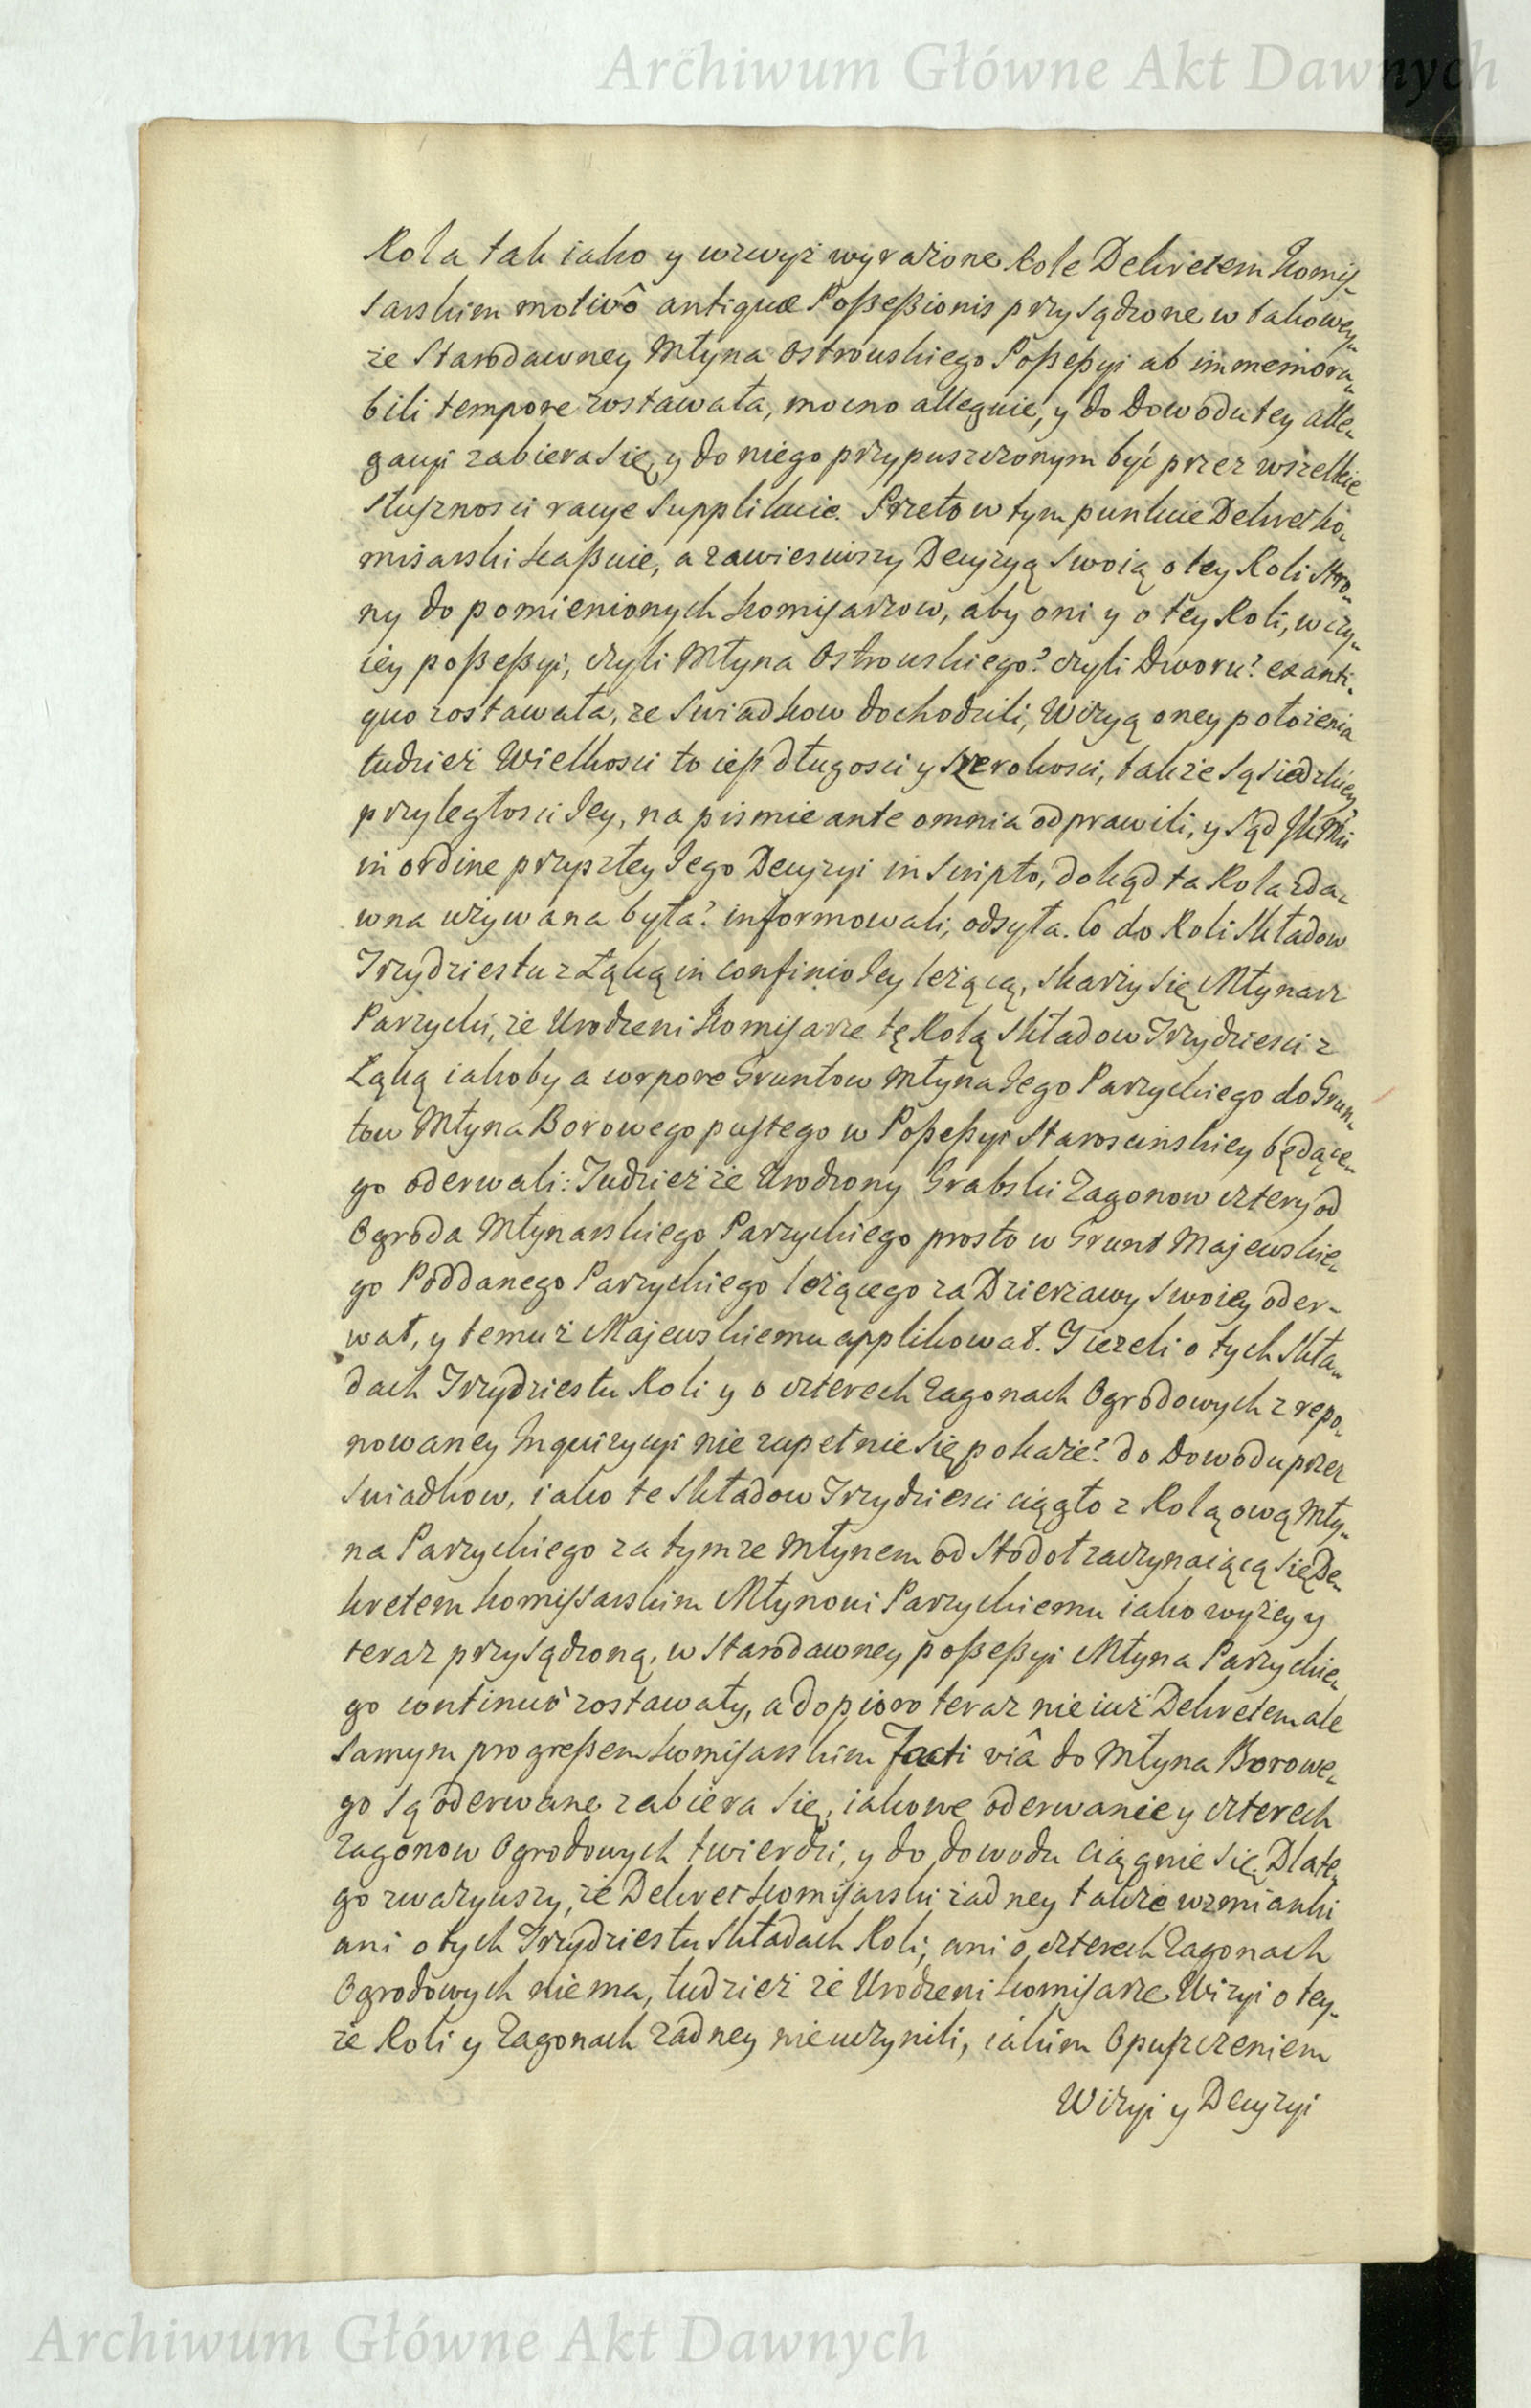 Archiwum Główne Akt Dawnych
Rola tak iako y wzwyż wyrażone Role Dekretem Komis-
sarskim motivô antiquæ Poßeßionis przysądzone w takowey-
że Starodawney Młyna Ostrowskiego Poßeßyi ab immemora-
bili tempore zostawała, mocno alleguie, y do Dowodu tey alle-
gacyi zabiera się, y do niego przypuszczonym być przez wszelkie
słuszności racye supplikuie. Przeto w tym punkcie Dekret Ko-
misarski kaßuie, a zawiesiwszy Decyzyą swoią o tey Roli Stro-
ny do pomienionych Komisarzow, aby oni y o tey Roli, w czy-
iey poßeßyi, czyli Młyna Ostrowskiego? czyli Dworu? ex anti-
quo zostawała, ze Swiadkow dochodzili, Wizyą oney położenia
tudzież Wielkosci to iest długosci y szerokosci, także sąsiedzkiey
przyległosci Jey, na pismie ante omnia odprawili, y Sąd
in ordine przyszłey Jego Decyzyi in Scripto, dokąd ta Rola zda-
wna używana była? informowali, odsyła. Co do Roli Składow
Trzydziestu z Łąką in confinio Jey leżącą, skarży się Młynarz
Parzychi, że Urodzeni Komisarze tę Rolą Składow Trzydziesci z
Łąką iakoby a corpore Gruntow Młyna Jego Parzychiego do Grun-
tow Młyna Borowego pustego w Poßeßyi Staroscinskiey będące-
go oderwali: Tudzież że Urodzony Grabski Zagonow cztery od
Ogroda Młynarskiego Parzychiego prosto w Grunt Majewskie-
go Poddanego Parzychiego leżącego za Dzierżawy swoiey oder-
wał, y temuż Majewskiemu applikował. Jeżeli o tych Skła-
dach Trzydziestu Roli y o czterech Zagonach Ogrodowych z repo-
nowaney Inquizycyi nie zupełnie się pokaże? do Dowodu przez
Swiadkow, iako te Składow Trzydziesci ciągło z Rolą ową Mły-
na Parzychiego za tymże Młynem od Stodoł zaczynaiącą się De-
kretem Komissarskim Młynowi Parzychiemu iako wyżey y
teraz przysądzoną, w Starodawney poßeßyi Młyna Parzychie-
go continuô zostawały, a dopioro teraz nie iuż Dekretem ale
samym progreßem Komisarskim Facti viâ do Młyna Borowe-
go są oderwane zabiera się, iakowe oderwanie y czterech
Zagonow Ogrodowych twierdzi, y do dowodu ciągnie się. Dlate-
go zważywszy, że Dekret Komisarski żadney także wzmianki
ani o tych Trzydziestu Składach Roli, ani o czterech Zagonach
Ogrodowych nie ma, tudzież że Urodzeni Komisarze Wizyi o tey-
że Roli y Zagonach żadney nie uczynili, iakim Opuszczeniem
Wizyi y Decyzyi
Archiwum Główne Akt Dawnych